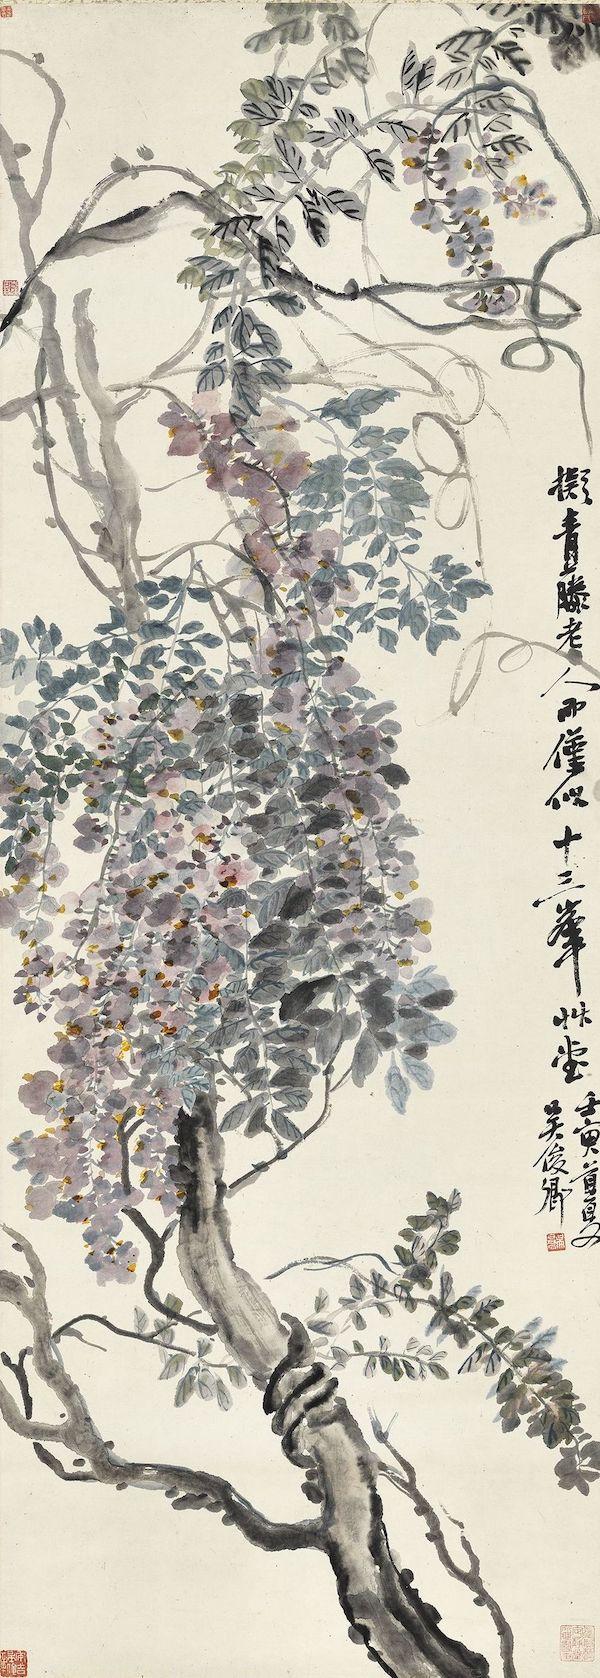 擬青藤老人而僅似十三峯艸堂
壬寅首夏
吳俊卿